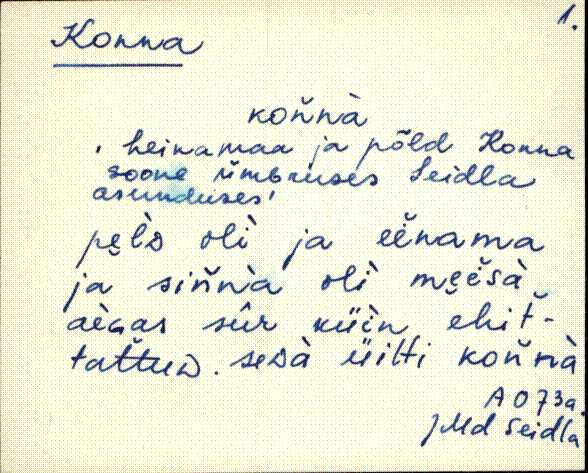 1.
Konna
koňnà
' heinamaa ja põld Konna
soone ümbruses Seidla
asunduses'
pe̮lᴅ olì ja eěnama
ja siňnà olì me̮e̮šà
aèɢas sûr küìn ehiť-
taťtuᴅ. seᴅà üìlti koňnà
A073a.
JMd Seidla